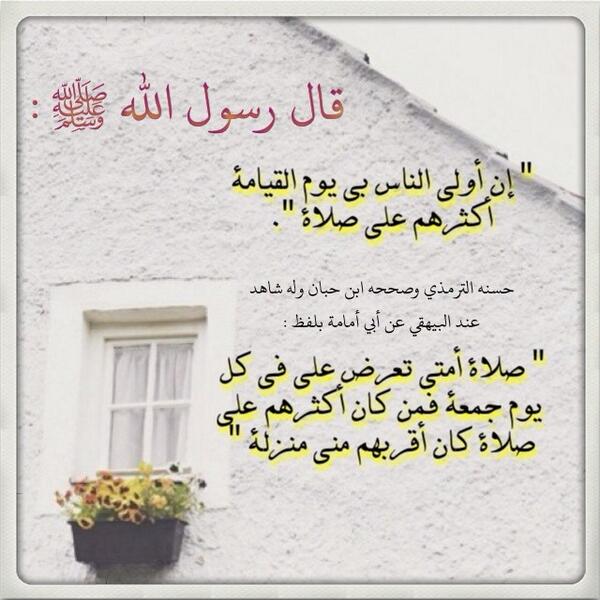 قال رسول الله ﷺ :
" إن أولى الناس بى يوم القيامة
أكثرهم على صلاة ".
حسنه الترمذي وصححه ابن حبان وله شاهد
عند البيهقي عن أبي أمامة بلفظ :
" صلاة أمتى تعرض على فى كل
يوم جمعة فمن كان أكثرهم على
صلاة كان أقربهم منى منزلة "